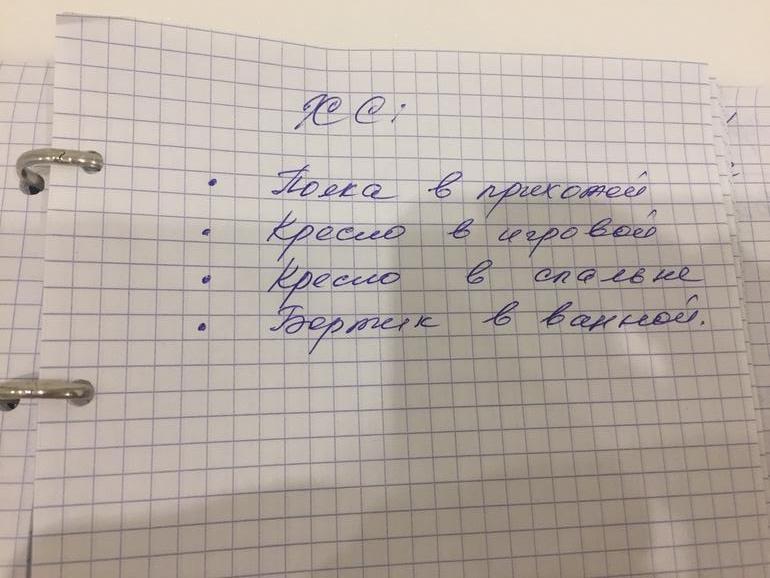 ХС:
• Полка в прихожей
• Кресло в игровой
• Кресло в спальне
• Бортик в ванной.